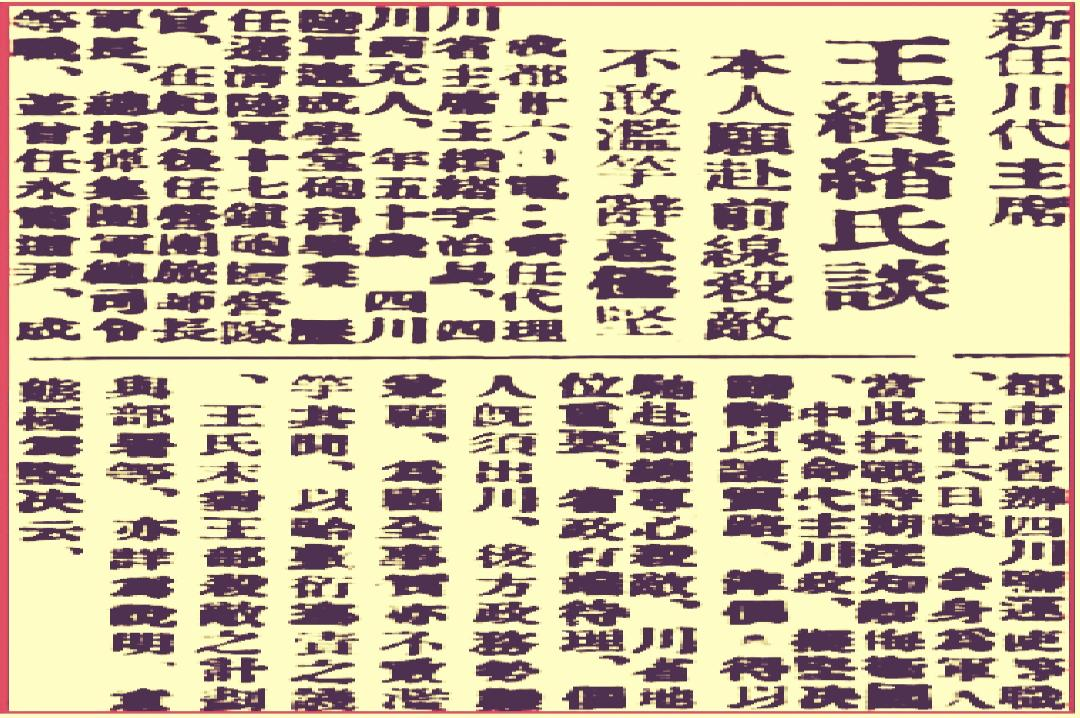 新任川代主席
王纘緒氏談
本人願赴前線殺敵
不敢濫竽辭意極堅
成都廿六日電：新任代理
川省主席王纘緒字治易、四
川西充人、年五十歲 四川
陸軍速成學堂砲科畢業 歷
任遜清陸軍十七鎮砲標督隊
官、在紀元後任營團旅師長
軍長、總指揮兼團軍總司令
等職、並曾任永甯道尹、成
都市政督辦四川鹽運使等職
、王廿六日談 余身為軍人
當此抗戰時期深知禦侮當國
、中央命代主川政、 堅決
請辭以讓賢路、 得以
馳赴前線專心殺敵、川省地
位重要、省政 待理、個
人既須出川、後方政務勢
兼顧、為顧全事實亦不敢濫
竽其間、以貽 之譏
、王氏本對王部殺敵之計劃
與部署等、亦詳為說明、
態極為堅決云、